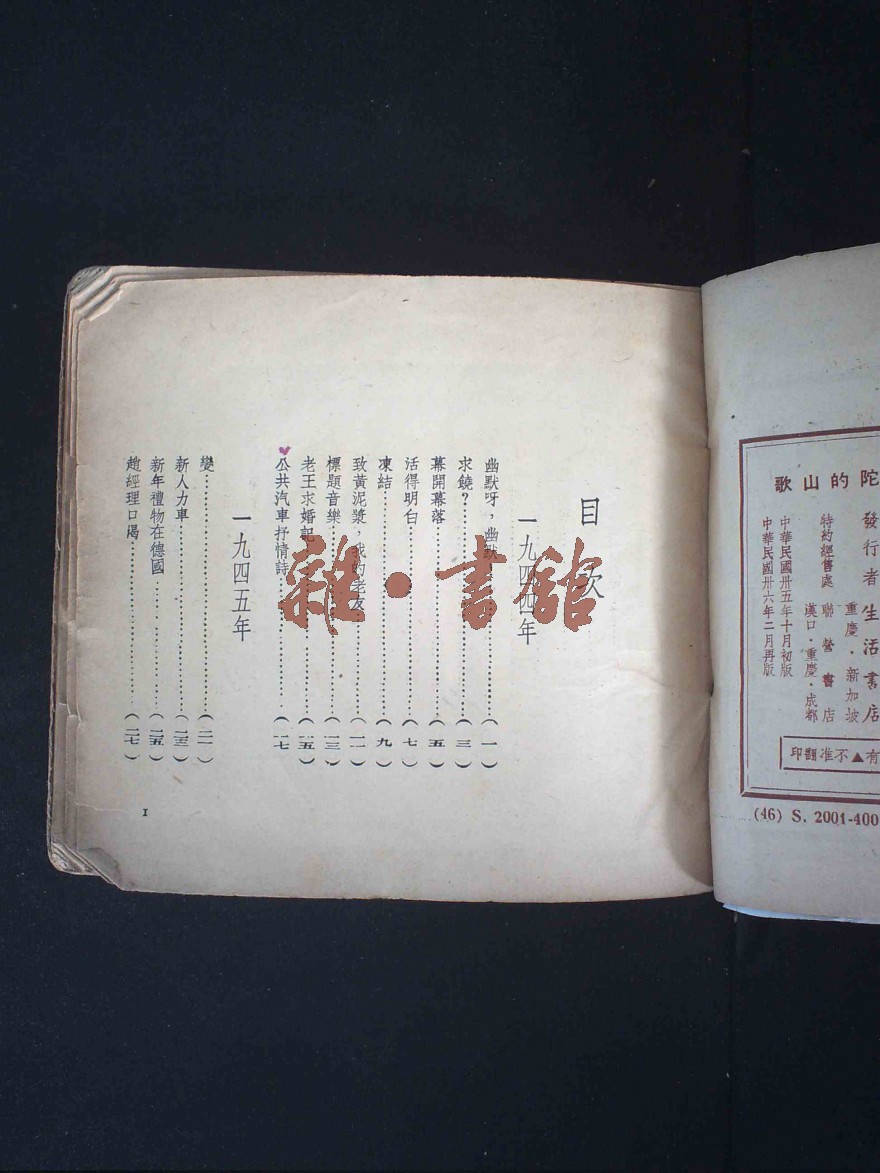 陀的山歌
發行者 生活書店
重慶・新加坡
特約經售處 聯營書店
漢口・重慶・成都
中華民國卅五年十月初版
中華民國卅六年二月再版
有▲不准翻印
(46) S. 2001-400
目次
一九四四年
幽默呀，幽默……(一)
求饒？……(三)
幕開幕落……(五)
活得明白……(七)
凍結……(九)
致黃泥漿，我的老友……(一一)
標題音樂……(一三)
老王求婚記……(一五)
公共汽車抒情詩……(一七)
一九四五年
變……(二一)
新人力車……(二三)
新年禮物在德國……(二五)
趙經理口渴……(二七)
1
雜・書館